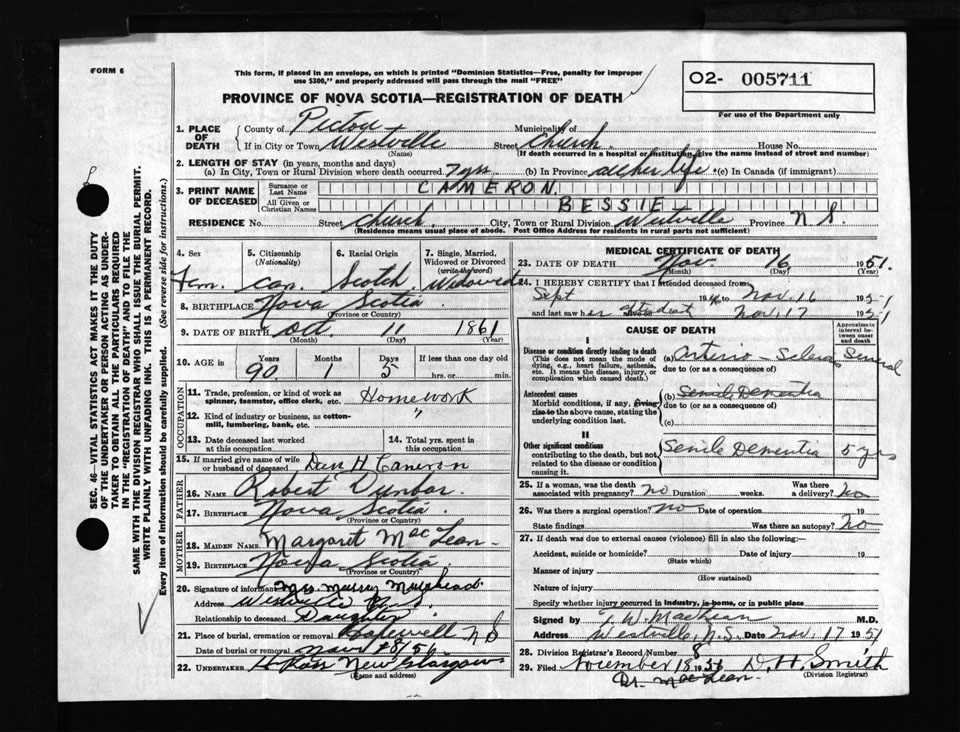 FORM 6
This form, if placed in an envelope, on which is printed "Dominion Statistics—Free, penalty for improper
use $300," and properly addressed will pass through the mail "FREE"
O2- 005711
For use of the Department only
PROVINCE OF NOVA SCOTIA—REGISTRATION OF DEATH
1. PLACE OF DEATH
County of Pictou Municipality of
If in City or Town Westville Street Church House No.
(Name) (If death occurred in a hospital or institution, give the name instead of street and number)
2. LENGTH OF STAY (in years, months and days)
(a) In City, Town or Rural Division where death occurred 7 yrs (b) In Province all her life (c) In Canada (if immigrant)
3. PRINT NAME OF DECEASED
Surname or Last Name CAMERON
All Given or Christian Names BESSIE
RESIDENCE No. Street Church City, Town or Rural Division Westville Province N S.
(Residence means usual place of abode. Post Office Address for residents in rural parts not sufficient)
4. Sex Fem.
5. Citizenship (Nationality) Can.
6. Racial Origin Scotch
7. Single, Married, Widowed or Divorced (write the word) Widowed
8. BIRTHPLACE Nova Scotia
(Province or Country)
9. DATE OF BIRTH Oct 11 1861
(Month) (Day) (Year)
10. AGE in Years Months Days If less than one day
90 1 5 hrs. or min.
OCCUPATION
11. Trade, profession, or kind of work as spinner, teamster, office clerk, etc. Homework
12. Kind of industry or business, as cotton-mill, lumbering, bank, etc. "
13. Date deceased last worked at this occupation
14. Total yrs. spent in this occupation
15. If married give name of wife or husband of deceased Dan H Cameron
FATHER
16. NAME Robert Dunbar
17. BIRTHPLACE Nova Scotia
(Province or Country)
MOTHER
18. MAIDEN NAME Margaret MacLean
19. BIRTHPLACE Nova Scotia
(Province or Country)
20. Signature of informant Mrs Murray
Address Westville
Relationship to deceased Daughter
21. Place of burial, cremation or removal Hopewell N S
Date of burial or removal Nov
22. UNDERTAKER H Ross New Glasgow
(Name and address)
MEDICAL CERTIFICATE OF DEATH
23. DATE OF DEATH Nov 16 1951.
(Month) (Day) (Year)
24. I HEREBY CERTIFY that I attended deceased from
Sept 19 to Nov. 16 1951
and last saw her Nov. 17 1951
CAUSE OF DEATH
Approximate interval between onset and death
I
Disease or condition directly leading to death (a) Arterio-
(This does not mean the mode of dying, e.g., heart failure, asthenia, etc. It means the disease, injury, or complication which caused death.)
due to (or as a consequence of)
Antecedent causes (b) Senile Dementia
Morbid conditions, if any, giving rise to the above cause, stating the underlying condition last.
due to (or as a consequence of)
(c)
II
Other significant conditions contributing to the death, but not related to the disease or condition causing it.
Senile Dementia 5 yrs
25. If a woman, was the death associated with pregnancy? no Duration weeks. Was there a delivery? no
26. Was there a surgical operation? no Date of operation 19
State findings Was there an autopsy? no
27. If death was due to external causes (violence) fill in also the following:—
Accident, suicide or homicide? Date of injury 19
(State which)
Manner of injury
(How sustained)
Nature of injury
Specify whether injury occurred in industry, in home, or in public place
Signed by M.D.
Address Westville, N.S. Date Nov. 17 1951
28. Division Registrar's Record Number 8
29. Filed November 18 19 D. H. Smith
(Division Registrar)
Dr. MacLean.
SEC. 46—VITAL STATISTICS ACT MAKES IT THE DUTY
OF THE UNDERTAKER OR PERSON ACTING AS UNDER-
TAKER TO OBTAIN ALL THE PARTICULARS REQUIRED
IN THE "REGISTRATION OF DEATH" AND TO FILE THE
SAME WITH THE DIVISION REGISTRAR WHO SHALL ISSUE THE BURIAL PERMIT.
WRITE PLAINLY WITH UNFADING INK. THIS IS A PERMANENT RECORD.
Every item of information should be carefully supplied. (See reverse side for instructions.)